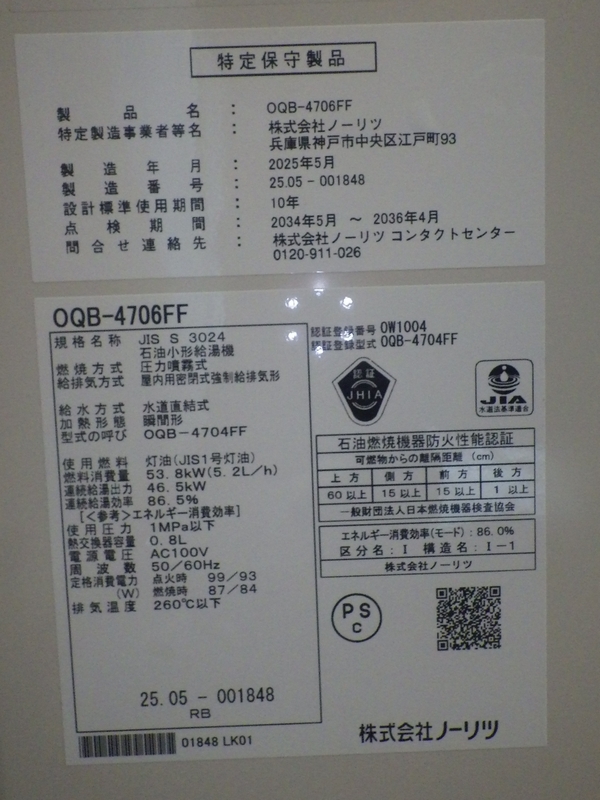 特定保守製品
製品名 : OQB-4706FF
特定製造事業者等名 : 株式会社ノーリツ
兵庫県神戸市中央区江戸町93
製造年月 : 2025年5月
製造番号 : 25.05-001848
設計標準使用期間 : 10年
点検期間 : 2034年5月 ～ 2036年4月
問合せ連絡先 : 株式会社ノーリツ コンタクトセンター
0120-911-026
OQB-4706FF
規格名称 JIS S 3024
石油小形給湯機
燃焼方式 圧力噴霧式
給排気方式 屋内用密閉式強制給排気形
給水方式 水道直結式
加熱形態 瞬間形
型式の呼び OQB-4704FF
使用燃料 灯油(JIS1号灯油)
燃料消費量 53.8kW(5.2L/h)
連続給湯出力 46.5kW
連続給湯効率 86.5%
[<参考>エネルギー消費効率]
使用圧力 1MPa以下
熱交換器容量 0.8L
電源電圧 AC100V
周波数 50/60Hz
定格消費電力 点火時 99/93
(W) 燃焼時 87/84
排気温度 260℃以下
25.05-001848
RB
01848 LK01
認証登録番号 OW1004
認証登録型式 OQB-4704FF
認証
JHIA
JIA
水道法基準適合
石油燃焼機器防火性能認証
可燃物からの離隔距離 (cm)
上方 側方 前方 後方
60以上 15以上 15以上 1以上
一般財団法人日本燃焼機器検査協会
エネルギー消費効率(モード):86.0%
区分名:I 構造名:I-1
株式会社ノーリツ
PS
C
株式会社ノーリツ